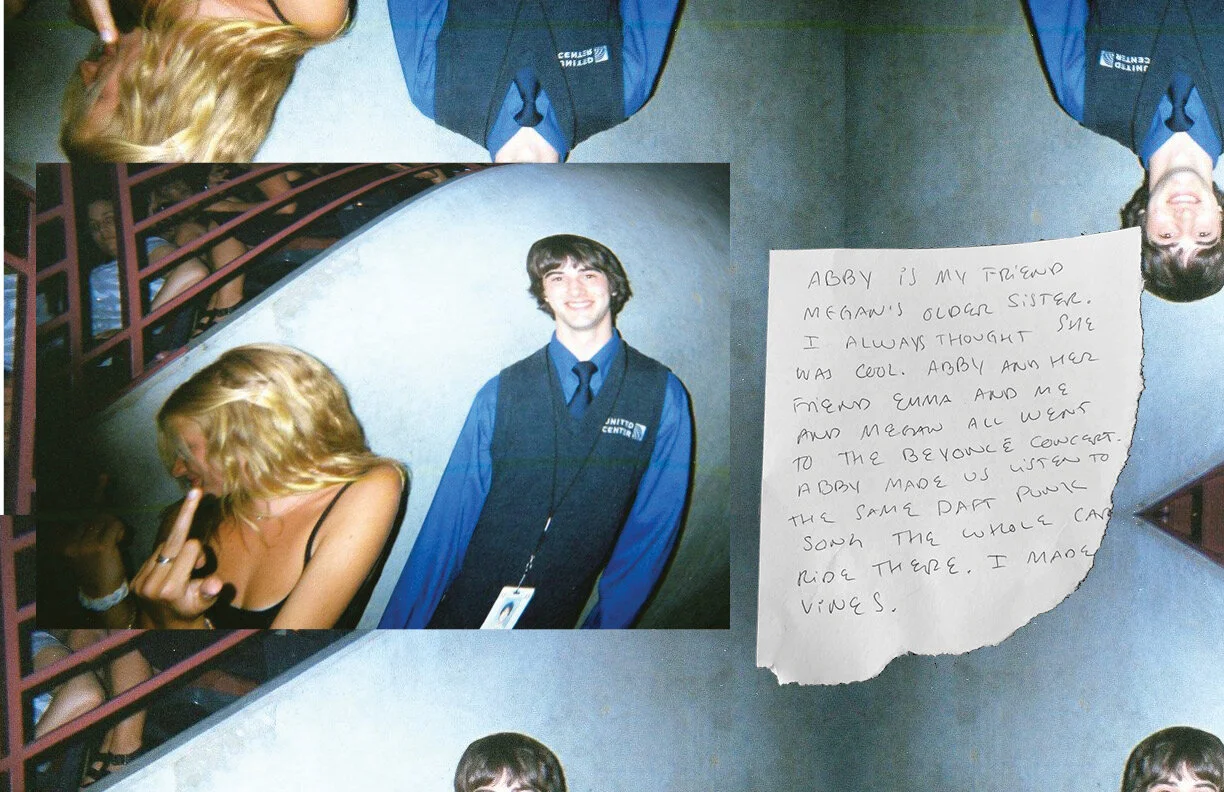 UNITED
CENTER
UNITED
CENTER
UNITED
CENTER
ABBY IS MY FRIEND
MEGAN'S OLDER SISTER.
I ALWAYS THOUGHT SHE
WAS COOL. ABBY AND HER
FRIEND EMMA AND ME
AND MEGAN ALL WENT
TO THE BEYONCÉ CONCERT.
ABBY MADE US LISTEN TO
THE SAME DAFT PUNK
SONG THE WHOLE CAR
RIDE THERE. I MADE
VINES.